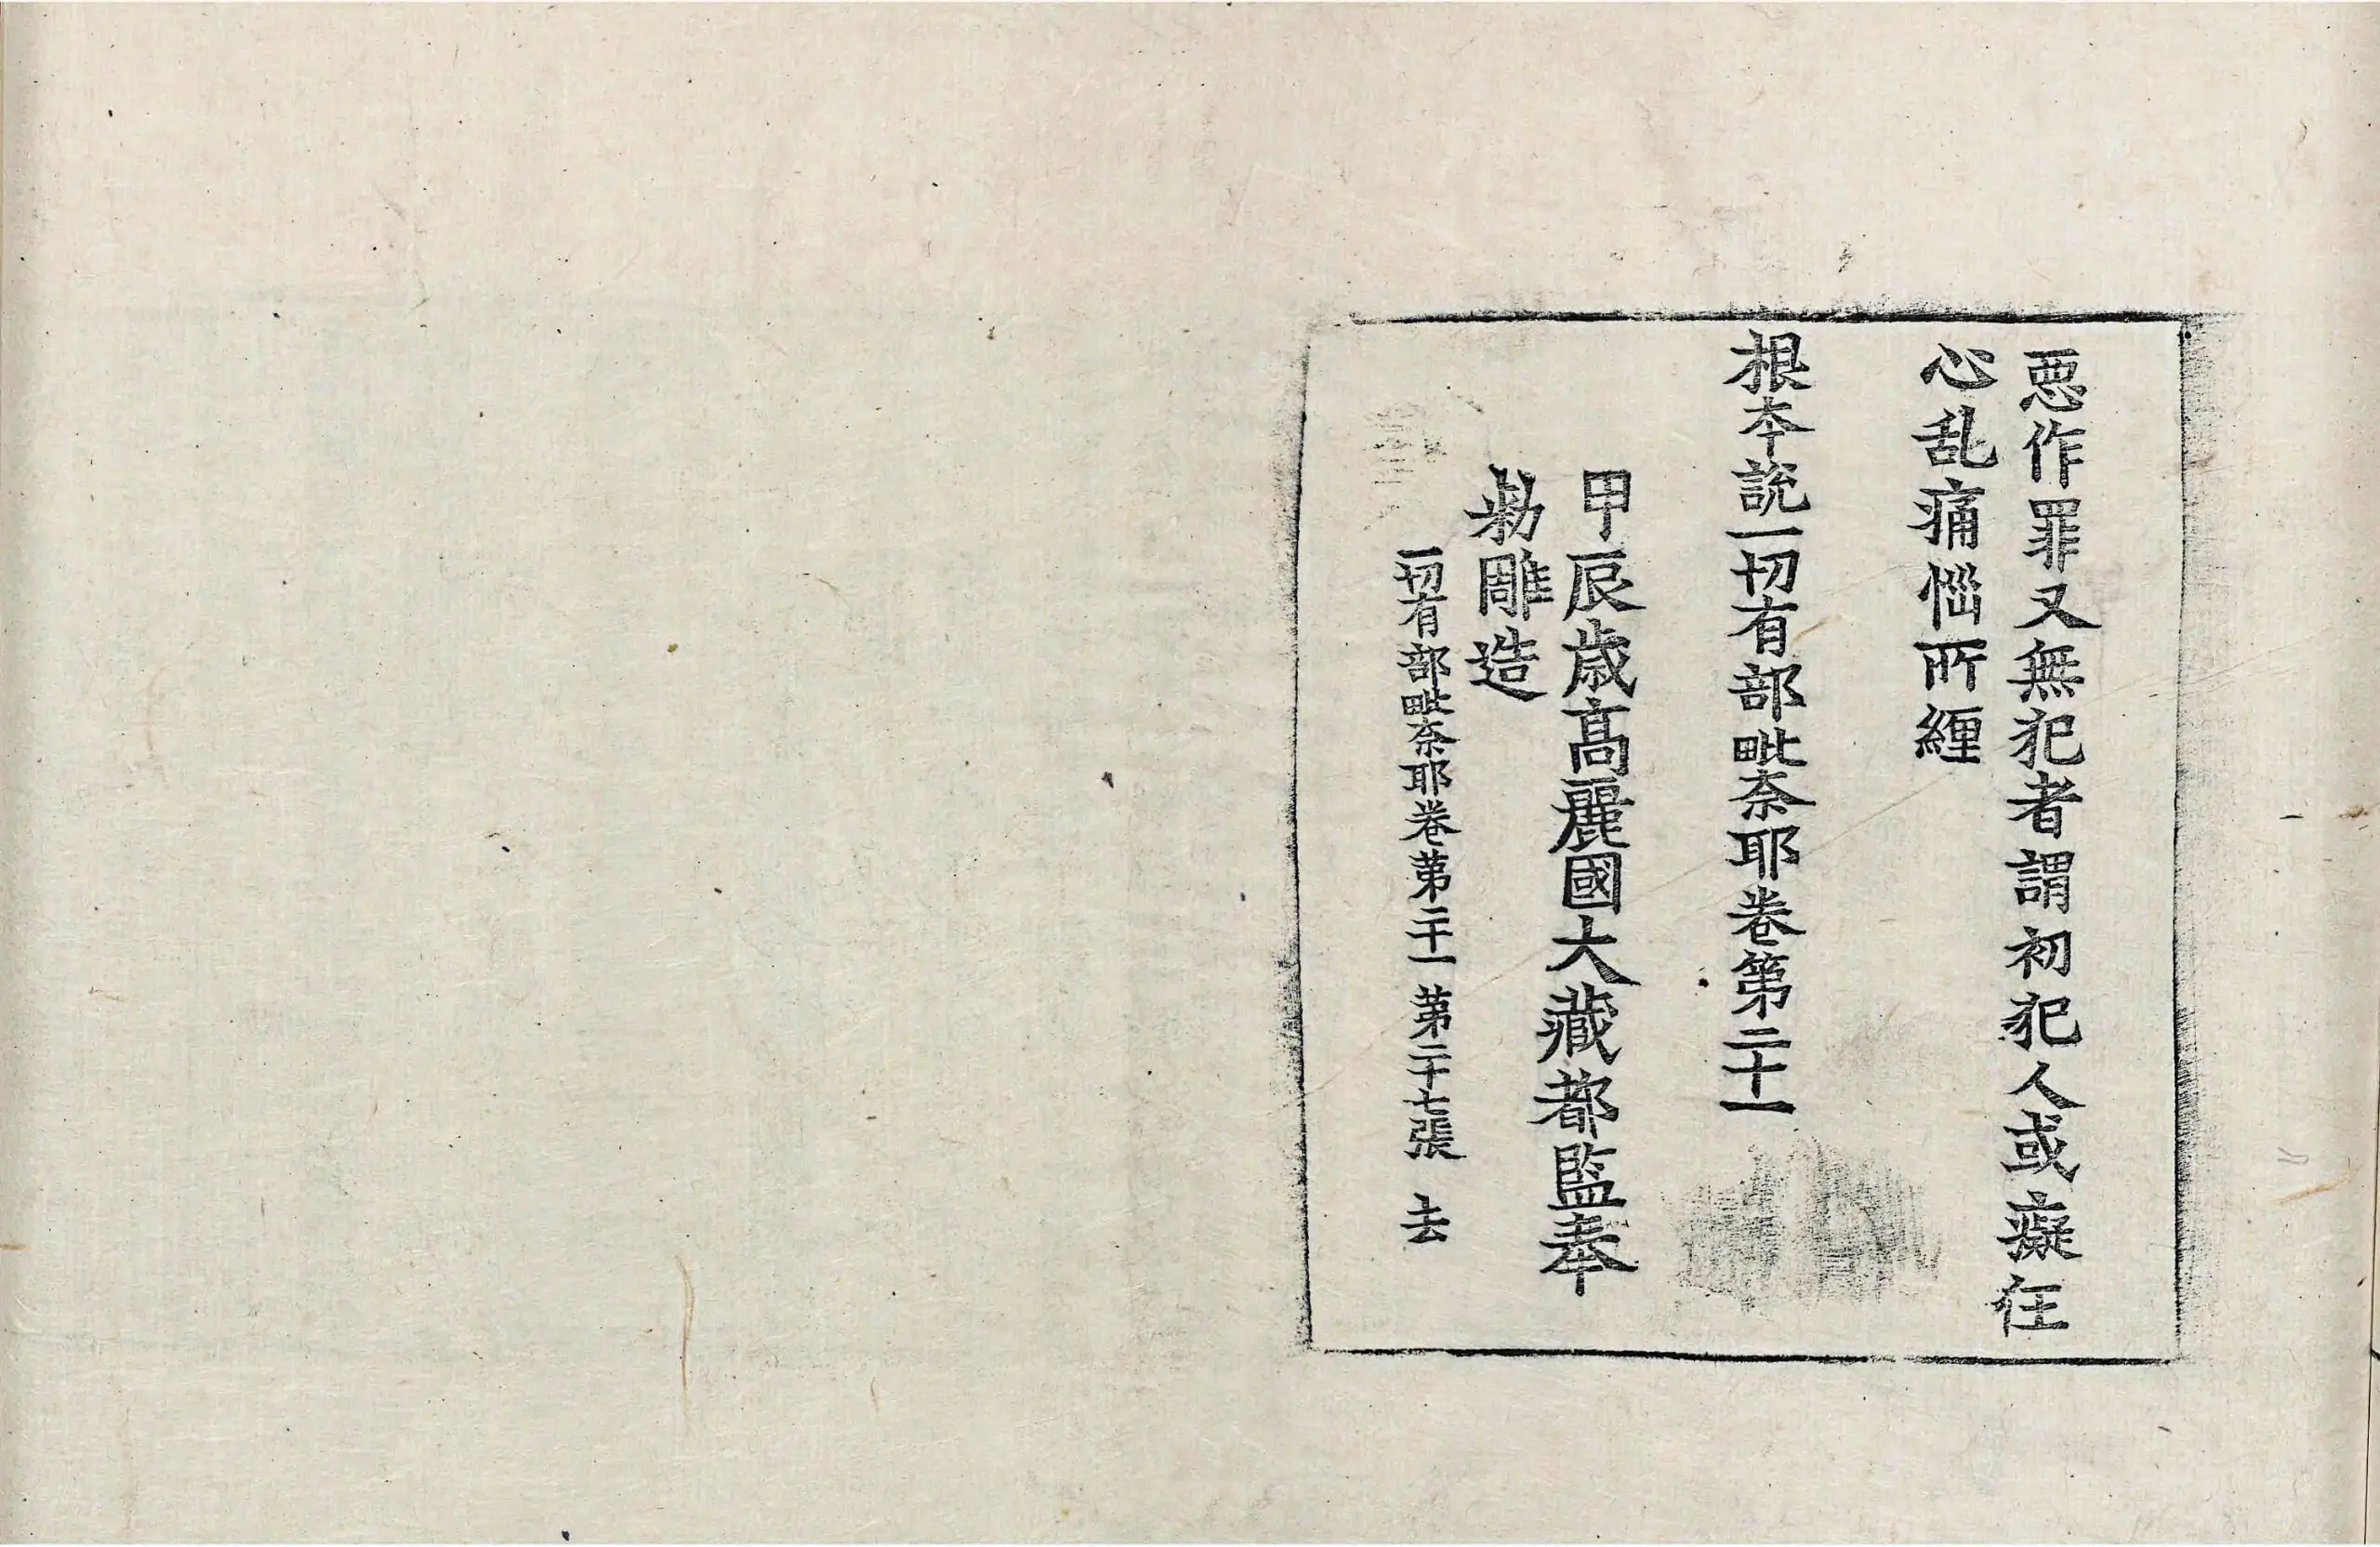 惡作罪又無犯者謂初犯人或癡狂
心乱痛惱所纒
根夲說一切有部毗奈耶卷第二十一
甲辰歲高麗國大藏都監奉
勑雕造
一切有部毗奈耶卷第二十一 第二十七張 去